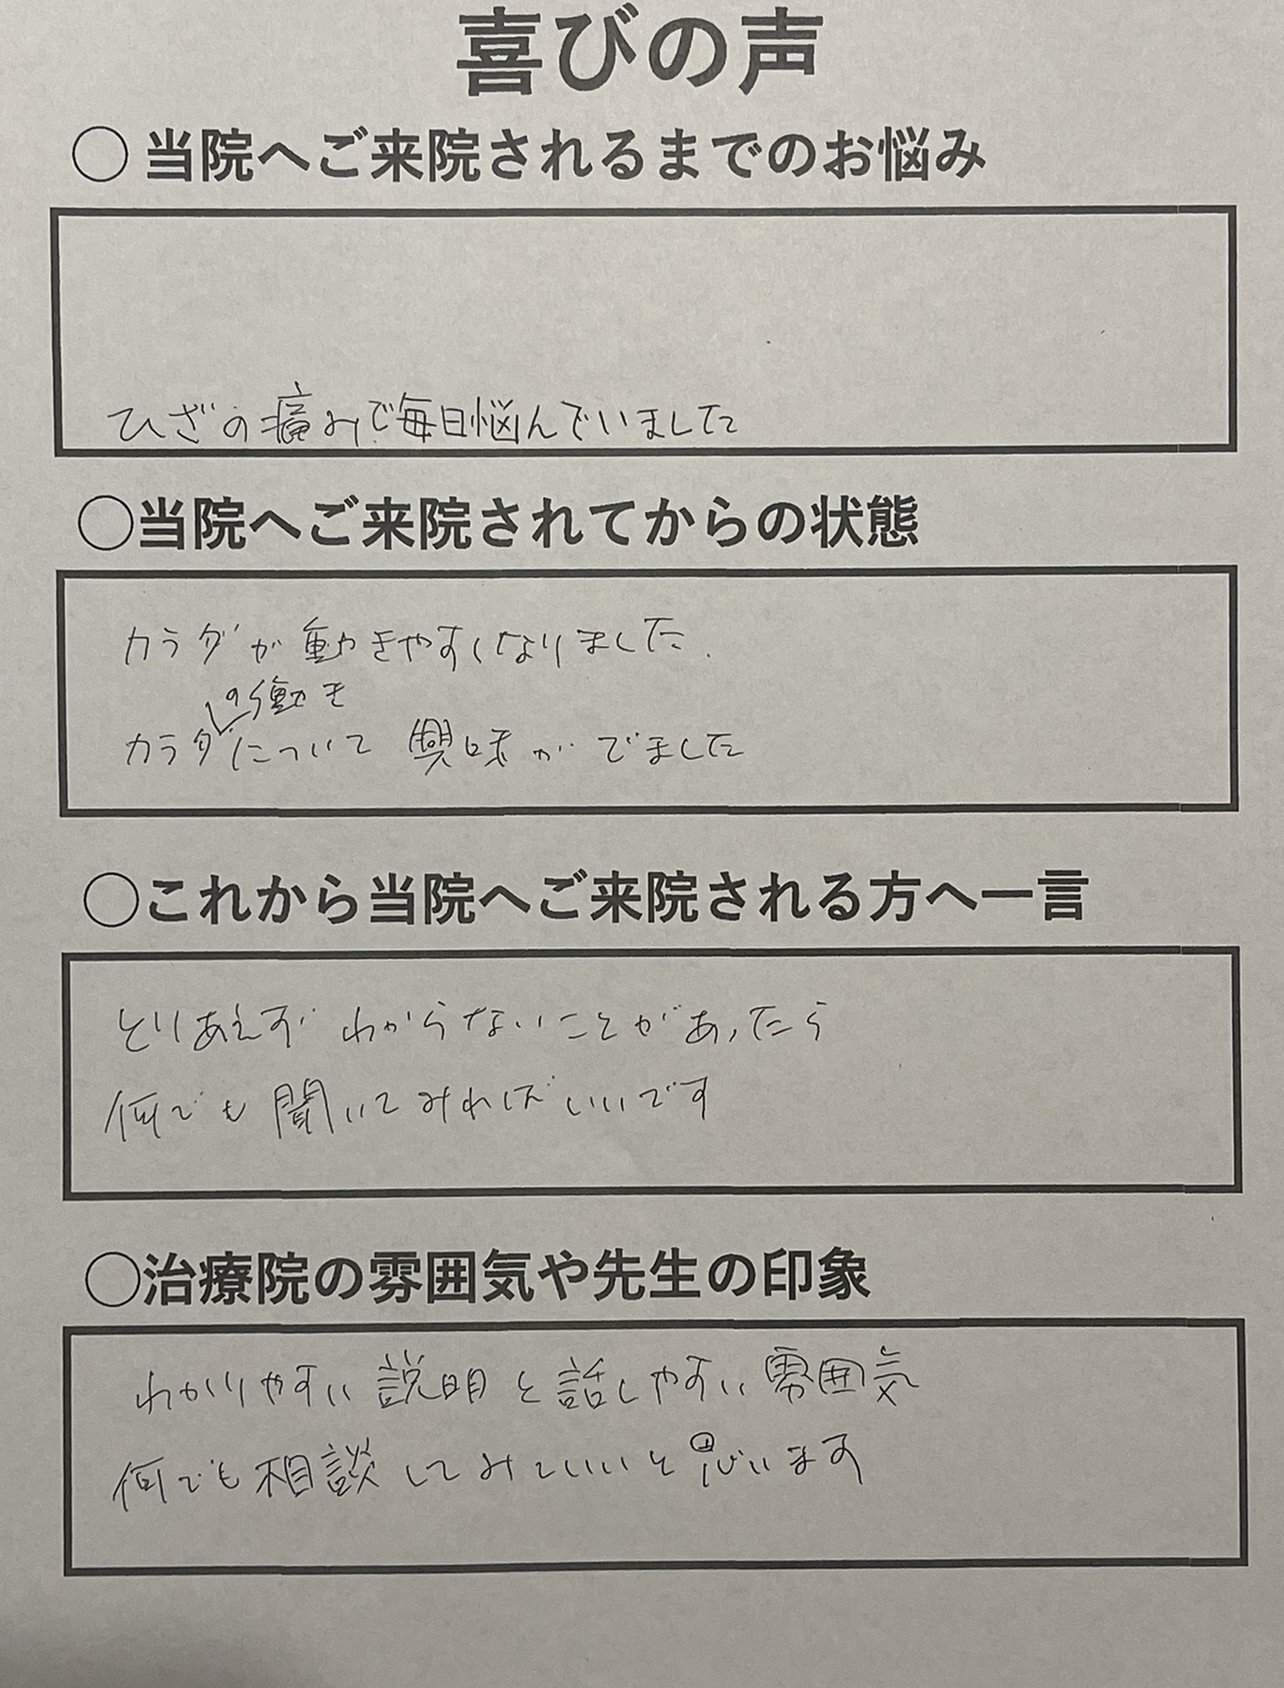 喜びの声
○ 当院へご来院されるまでのお悩み
ひざの痛みで毎日悩んでいました
○当院へご来院されてからの状態
カラダが動きやすくなりました.
の働き
カラダについて 興味が でました
○これから当院へご来院される方へ一言
とりあえず わからないことがあったら
何でも 聞いてみればいいです
○治療院の雰囲気や先生の印象
わかりやすい 説明と話しやすい 雰囲気
何でも相談してみていいと思います